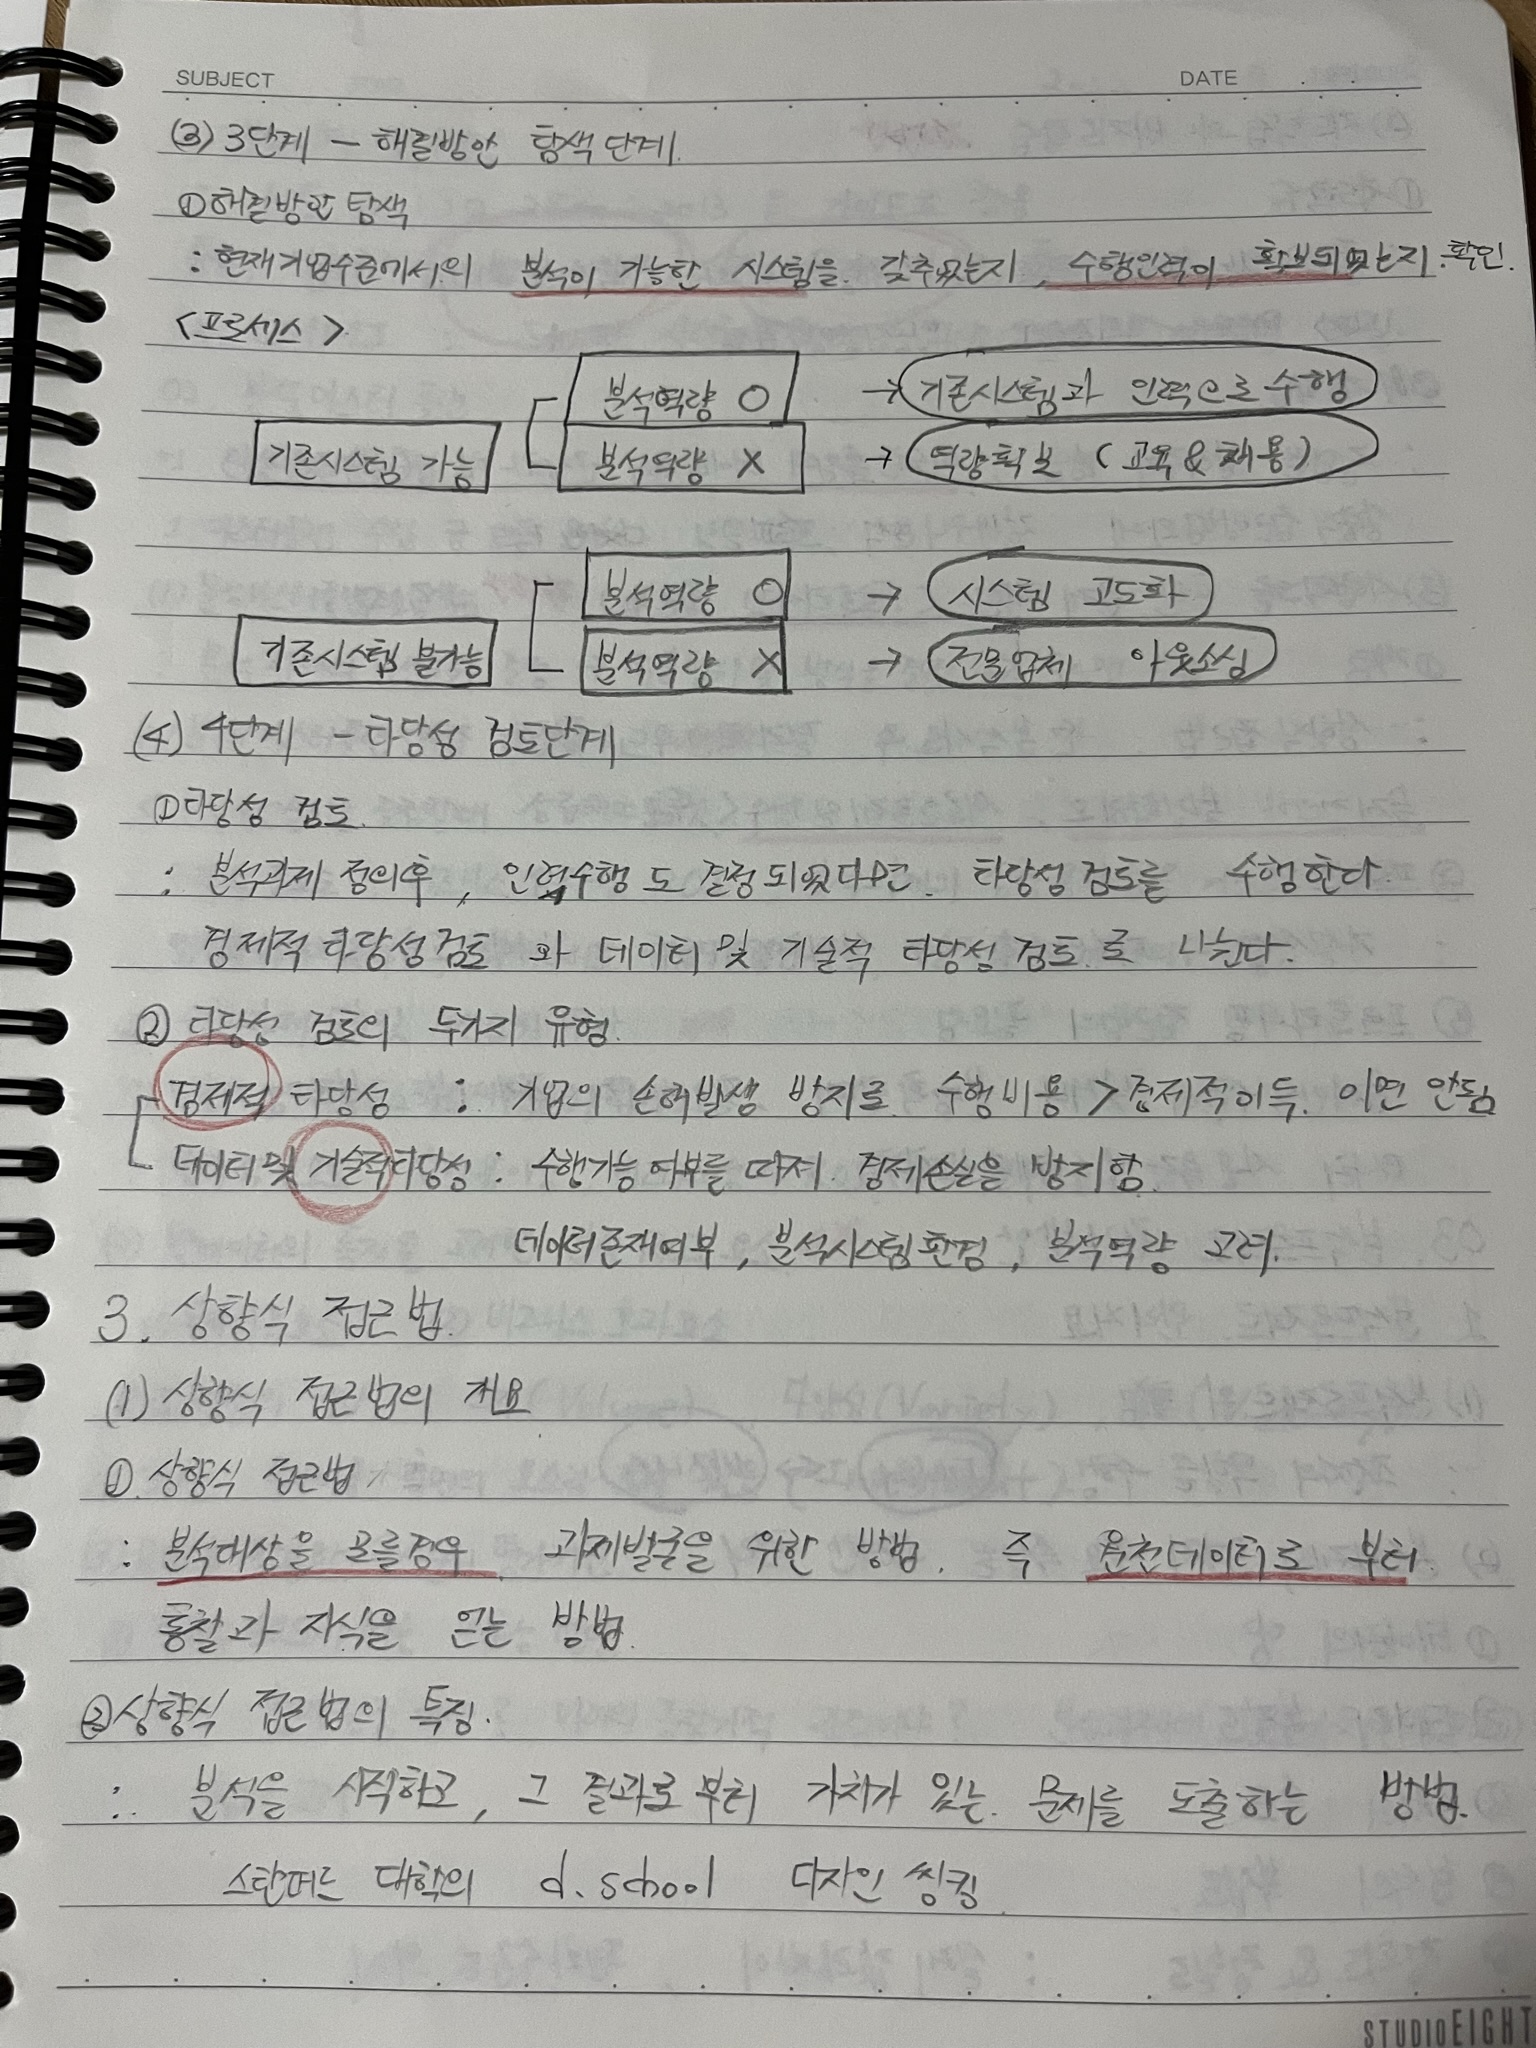 SUBJECT DATE
(3) 3단계 - 해결방안 탐색단계.
① 해결방안 탐색
: 현재기업수준에서의 분석이 가능한 시스템을 갖추었는지, 수행인력이 확보되었는지 확인.
<프로세스>
분석역량 O → 기존시스템과 인력으로 수행
기존시스템 가능
분석역량 X → 역량확보 (교육 & 채용)
분석역량 O → 시스템 고도화
기존시스템 불가능
분석역량 X → 전문업체 아웃소싱
(4) 4단계 - 타당성 검토단계
① 타당성 검토.
: 분석과제 정의후, 인력수행도 결정되었다면 타당성검토를 수행한다.
경제적 타당성검토 와 데이터 및 기술적 타당성검토로 나뉜다.
② 타당성 검토의 두가지 유형.
경제적 타당성 : 기업의 손해발생 방지로 수행비용 > 경제적이득. 이면 안됨
데이터 및 기술적타당성 : 수행가능 여부를 따져 경제손실을 방지함.
데이터존재여부, 분석시스템환경, 분석역량 고려.
3. 상향식 접근법.
(1) 상향식 접근법의 개요
① 상향식 접근법
: 분석대상을 모를경우 과제발굴을 위한 방법. 즉 원천데이터로 부터
통찰과 지식을 얻는 방법.
② 상향식 접근법의 특징.
: 분석을 시작하고, 그 결과로부터 가치가 있는 문제를 도출하는 방법.
스탠퍼드 대학의 d.school 디자인 씽킹.
STUDIOEIGHT